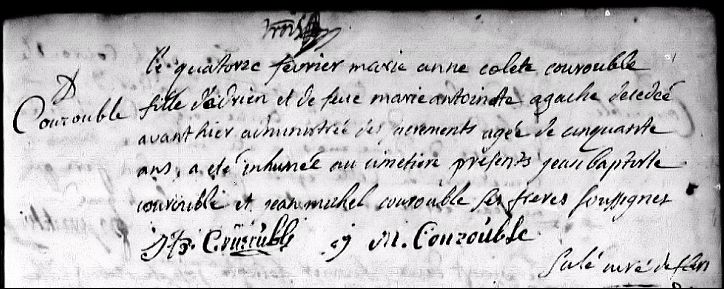 trois
le quatorze fevrier marie anne colete courouble
D
Courouble
fille d'adrien et de feue marie antoinette agache decedeé
avant hier administreé des sacrements ageé de cinquante
ans, a eté inhumeé au cimetiere presents jean baptiste
courouble et jean michel courouble ses freres soussignez
Courouble j M. Courouble
curé de